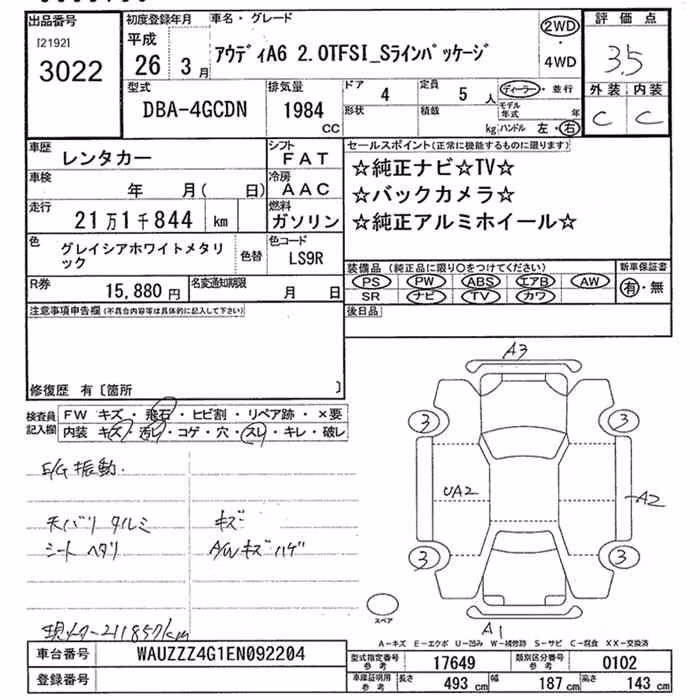 出品番号
[2192]
3022
初度登録年月
平成
26 3 月
車名・グレード
アウディA6 2.0TFSI_Sラインパッケージ
2WD
・
4WD
評価点
3.5
外装 内装
C C
型式
DBA-4GCDN
排気量
1984
CC
ドア
4
定員
5 人
ディーラー・並行
形状
積載
kg
モデル年式 年
ハンドル 左・右
車歴
レンタカー
シフト
FAT
車検
年 月( 日)
冷房
AAC
走行
21万1千844 km
燃料
ガソリン
色
グレイシアホワイトメタリ
ック
色替
色コード
LS9R
R券
15,880 円
名変通知期限
月 日
セールスポイント(正常に機能するものに限ります)
☆純正ナビ☆TV☆
☆バックカメラ☆
☆純正アルミホイール☆
装備品 (純正品に限り〇をつけてください)
PS PW ABS エアB AW
SR ナビ TV カワ
新車保証書
有・無
注意事項申告欄(不具合内容等は具体的に記入して下さい)
後日品
修復歴 有〔箇所 〕
検査員
記入欄
FW キズ・飛石・ヒビ割・リペア跡・×要
内装 キズ・汚レ・コゲ・穴・スレ・キレ・破レ
E/G 振動.
天バリ タルミ
キズ
シート ヘタリ
A/W キズ ハゲ
現メーター211857km
A3
3 3
UA2
A2
3 3
A1
スペア
A-キズ E-エクボ U-凹み W-補修跡 S-サビ C-腐食 XX-交換済
車台番号
WAUZZZ4G1EN092204
登録番号
型式指定番号
参考
17649
類別区分番号
参考
0102
車庫証明用
参考
長さ
493 cm
幅
187 cm
高さ
143 cm